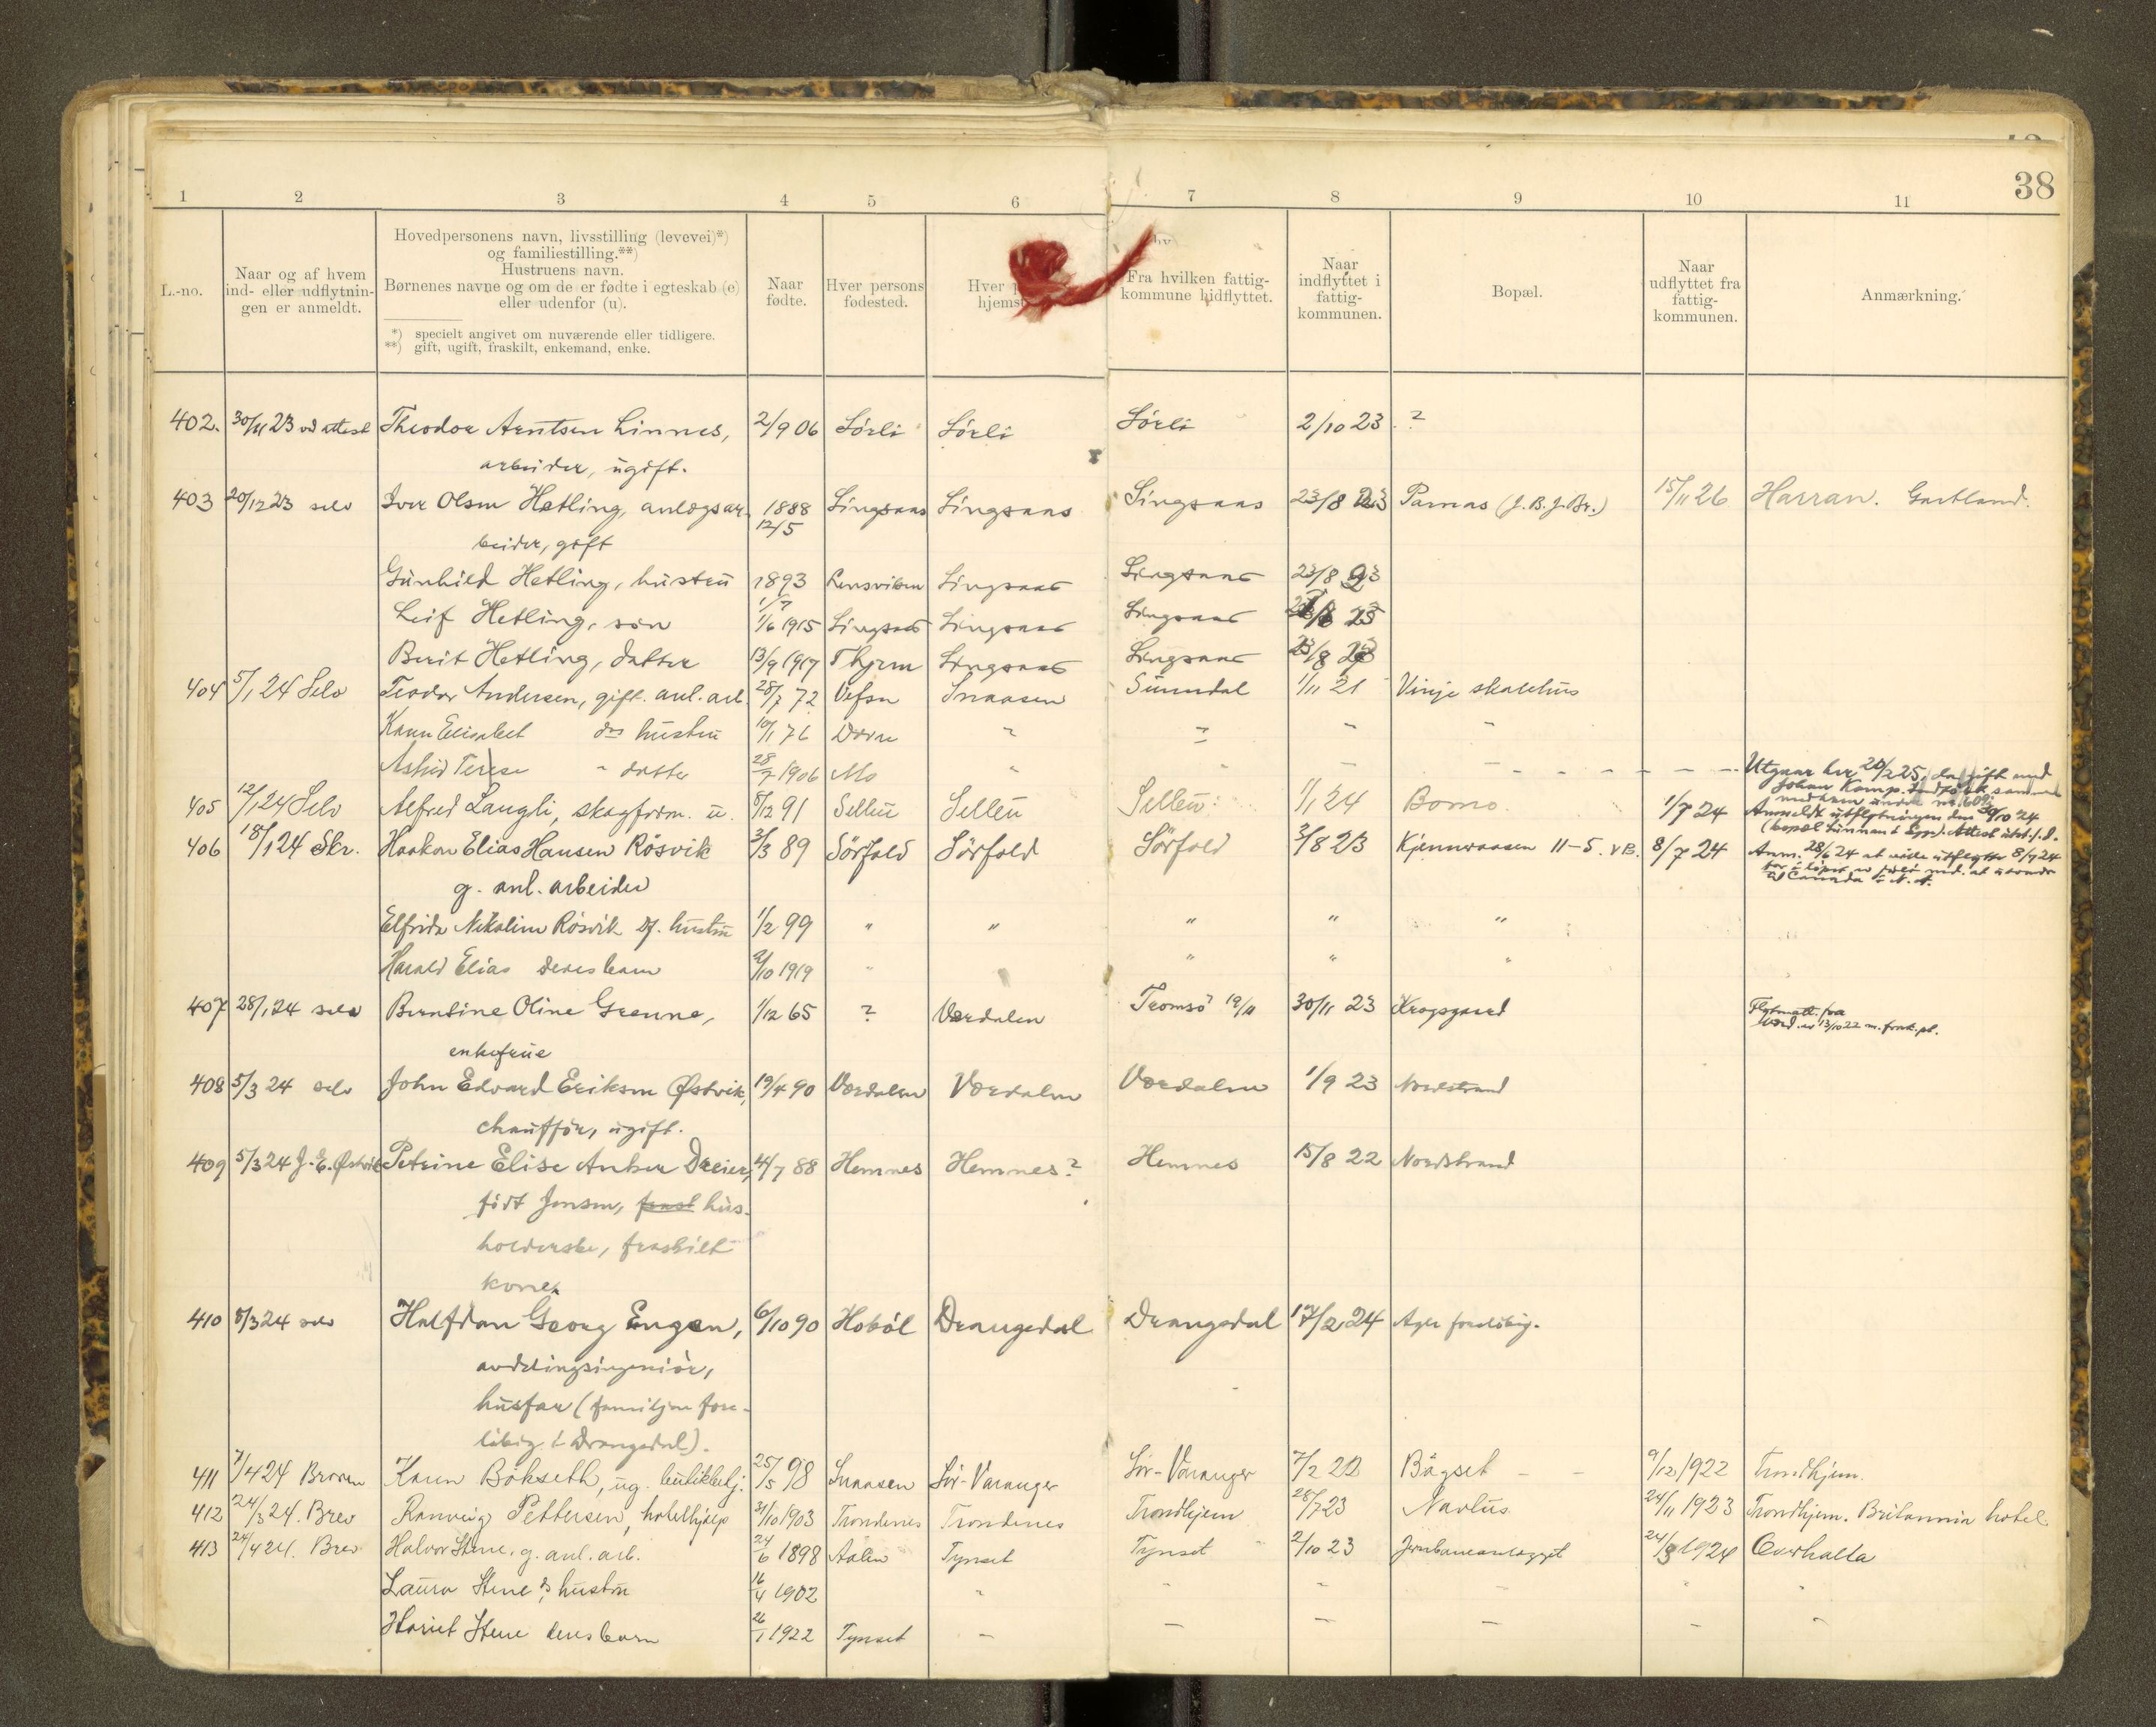 38
1 2 3 4 5 6 7 8 9 10 11
L.-no.
Naar og af hvem
ind- eller udflytnin-
gen er anmeldt.
Hovedpersonens navn, livsstilling (levevei)*)
og familiestilling.**)
Hustruens navn.
Børnenes navne og om de er fødte i egteskab (e)
eller udenfor (u).
*) specielt angivet om nuværende eller tidligere.
**) gift, ugift, fraskilt, enkemand, enke.
Naar
fødte.
Hver persons
fødested.
Hver
hjemst
Fra hvilken fattig-
kommune hidflyttet.
Naar
indflyttet i
fattig-
kommunen.
Bopæl.
Naar
udflyttet fra
fattig-
kommunen.
Anmærkning.
402. 30/11 23 ved attest Theodor Arntsen Linnes, 2/9 06 Sörli Sörli Sörli 2/10 23 ?
arbeider, ugift.
403 20/12 23 selv Iver Olsen Hetling, anlægsar- 1888 Singsaas Singsaas Singsaas 23/8 23 Parnas (J.B.J.Br.) 15/11 26 Harran. Gartland.
12/5
beider, gift
Gunhild Hetling, hustru 1893 Rensviken Singsaas Singsaas 23/8 23
1/7
Leif Hetling, sön 1/6 1915 Singsaas Singsaas Singsaas
Berit Hetling, datter 13/9 1917 Thjem Singsaas Singsaas 23/8 23
404 5/1 24 Selv Teodor Andersen, gift. anl. arb. 28/7 72 Vefsn Snaasen Sunndal 1/11 21 Vinje skolehus
Karen Elisabet ds hustru 10/1 76 " " " "
Astrid Terese " datter 28/7 1906 Mo " - - - Utgaar her 20/2 25, da gift med
Johan Kamp.
405 12/1 24 Selv Alfred Laugli, skogform. u. 5/12 91 Selleu Selleu Selleu 1/1 24 Bomo 1/7 24 Anmeldt utflytningen den 30/10 24
406 18/1 24 Skr. Haakon Elias Hansen Rösvik 3/3 89 Sörfold Sörfold Sörfold 3/8 23 Kjennraasen 11-5. VB. 8/7 24 Anm. 28/6 24 at ville utflytte 8/7 24
g. anl. arbeider
til Canada i N. A.
Elfrida Nikoline Rösvik Df. hustru 1/2 99 " " " " "
Harald Elias deres barn 2/10 1919 " " " "
407 28/1 24 selv Berntine Oline Grenne, 1/12 65 ? Værdalen Tromsö? 19/11 30/11 23 Krogsgaard Flytmatt. fra
Værd. er 13/10 22 m. fork. pl.
enkefrue
408 5/3 24 selv John Edvard Eriksen Østvik, 19/4 90 Værdalen Værdalen Værdalen 1/9 23 Nordstrand
chaufför, ugift.
409 5/3 24 J. E. Østvik Petrine Elise Anker Dreier, 4/7 88 Hemnes Hemnes? Hemnes 15/8 22 Nordstrand
födt Jensen, hus-
holderske, fraskilt
kone.
410 5/3 24 selv Halfdan Georg Engen, 6/10 90 Hobøl Drangedal Drangedal 17/2 24 Agle forelöbig.
avdelingsingeniör,
husfar (familjen fore-
löbig i Drangedal).
411 7/4 24 Broren Karen Bökseth, ug. butikbetj. 25/5 98 Snaasen Sör-Varanger Sör-Varanger 7/2 22 Bögset - - 9/12 1922 Trondhjem.
412 24/3 24. Brev Ranveig Pettersen, hotelhjælp 31/10 1903 Trondenes Trondenes Trondhjem 28/7 23 Navlus 24/11 1923 Trondhjem. Britannia hotel.
413 24/4 24. Brev Halvor Stene. g. anl. arb. 24/6 1898 Aalen Tynset Tynset 2/10 23 Jernbaneanlægget 24/3 1924 Overhalla
Laura Stene ds hustru 16/4 1902 " " " - " "
Hariet Stene deres barn 26/1 1922 Tynset - - - - - -